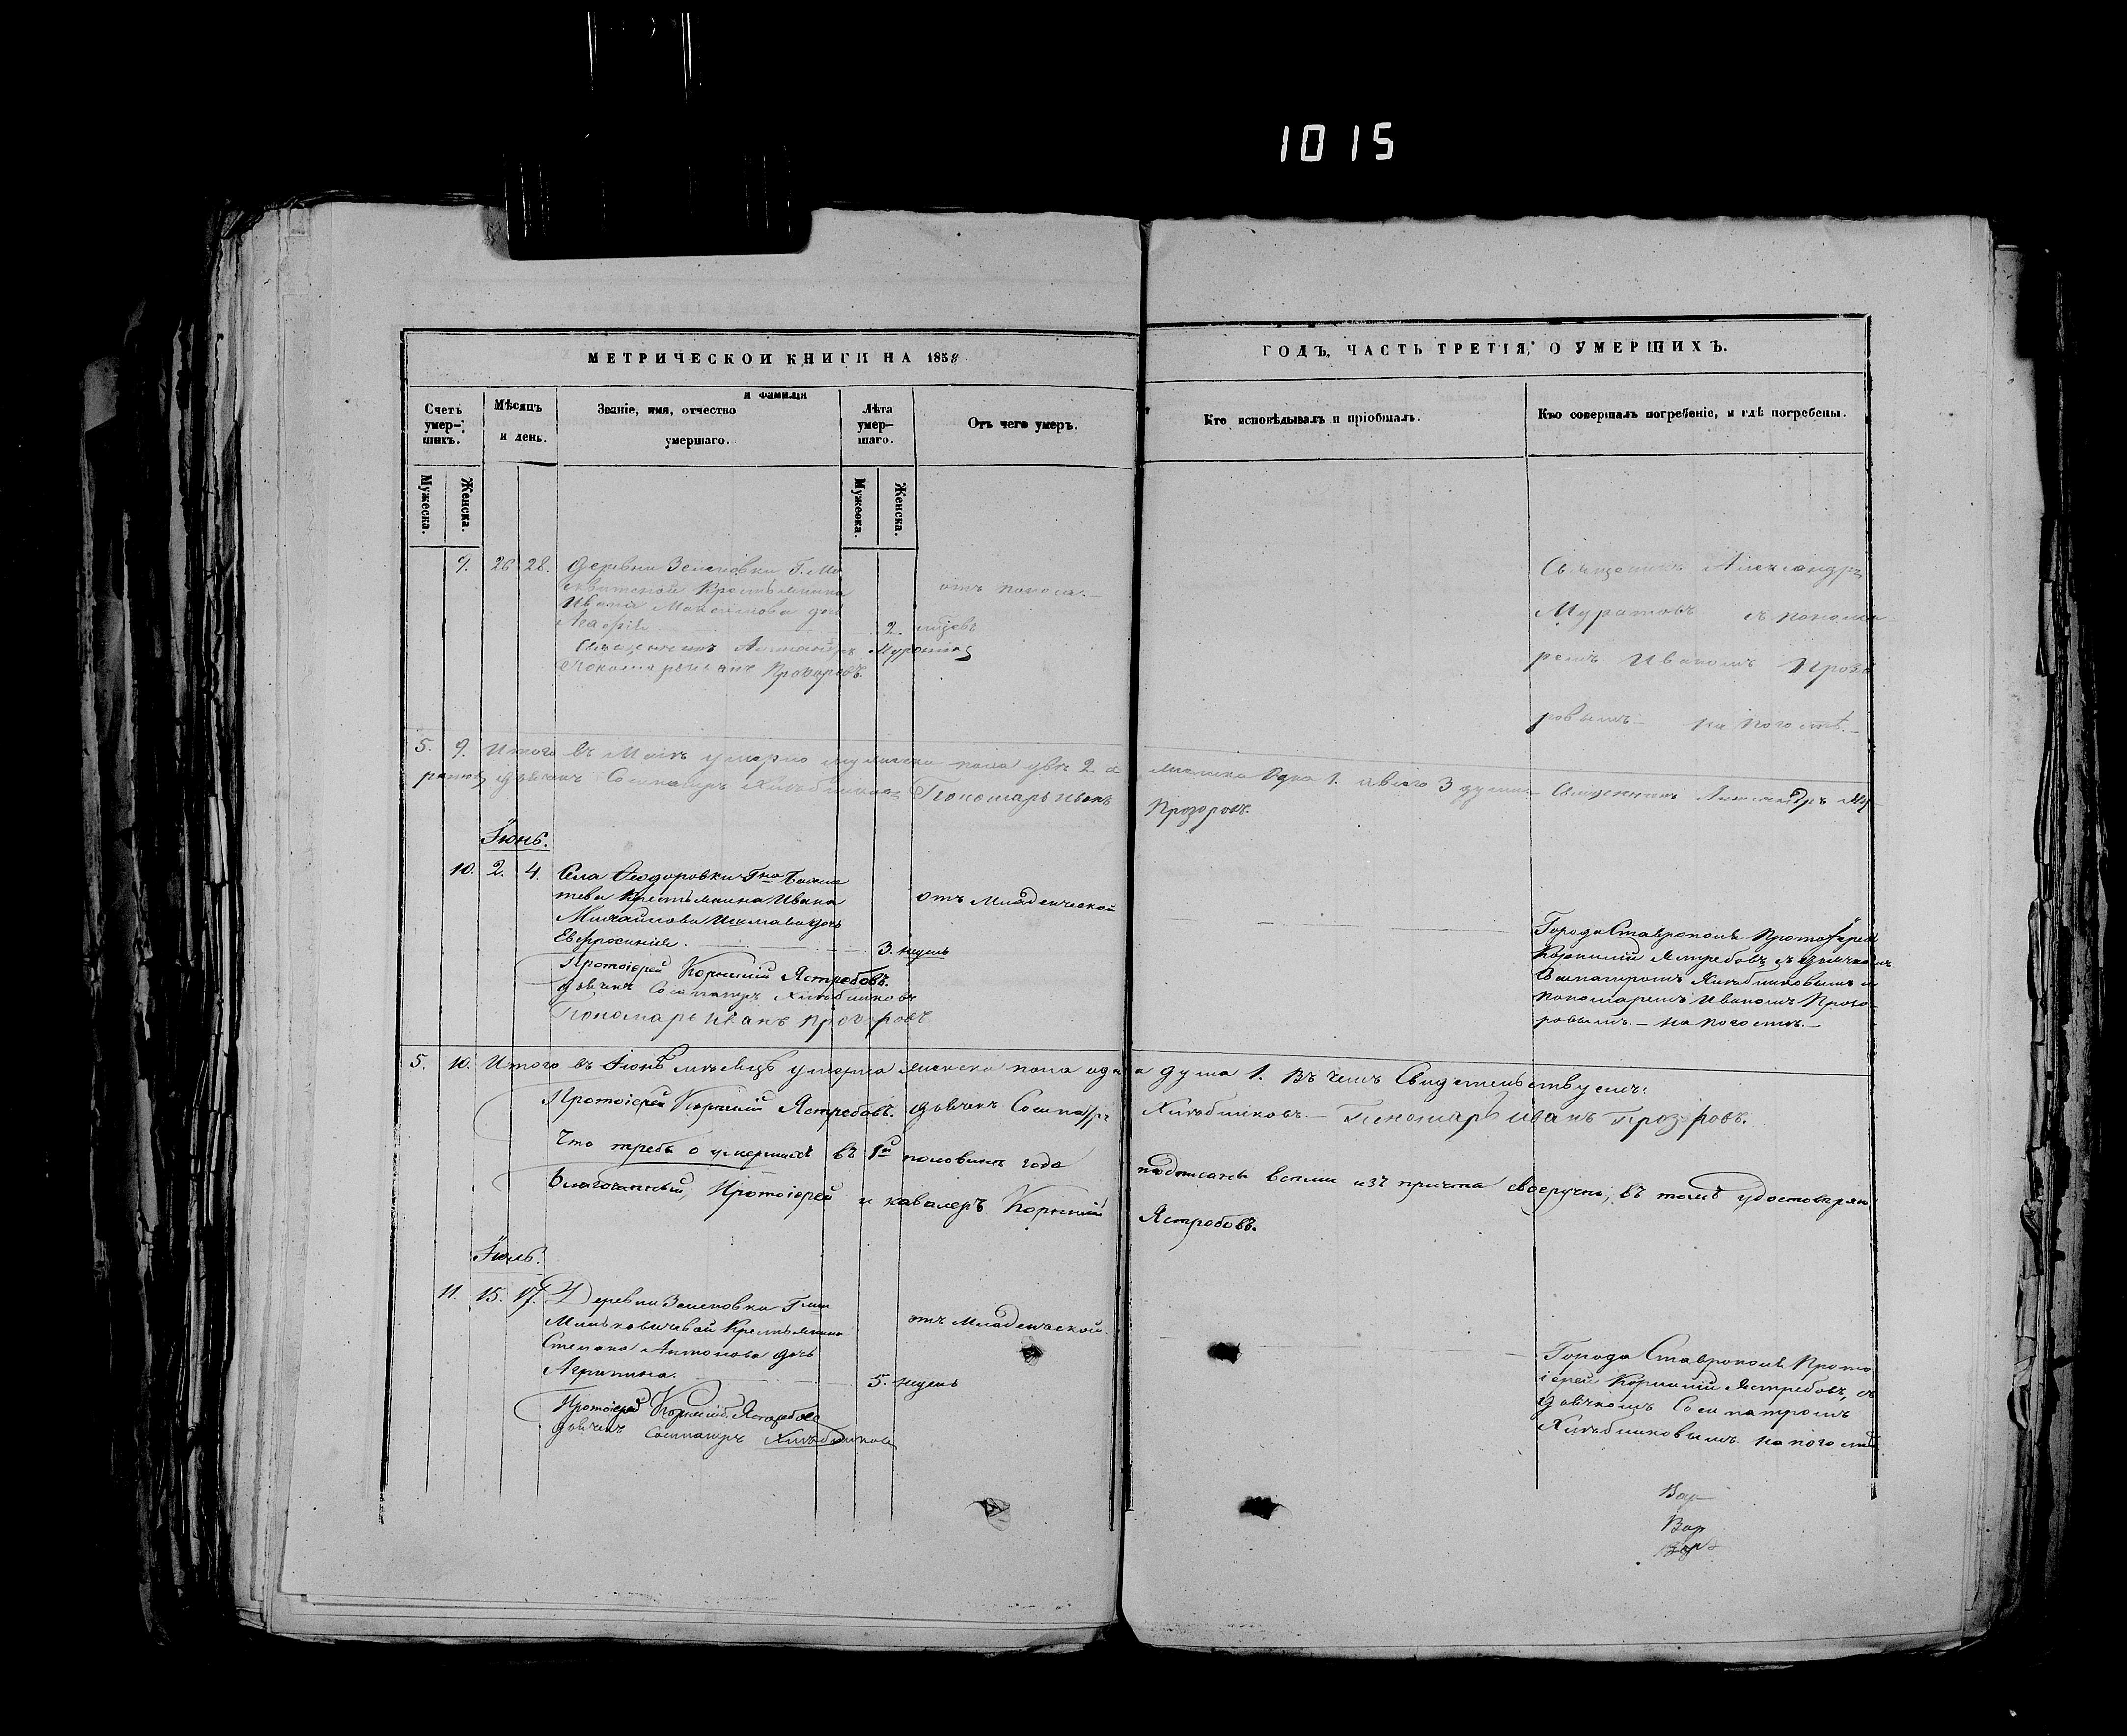 1015
МЕТРИЧЕСКОЙ КНИГИ НА 1858
ГОДЪ, ЧАСТЬ ТРЕТІЯ, О УМЕРШИХЪ.
Счетъ умер-шихъ.
Мѣсяцъ и день.
Званіе, имя, отчество и фамилія умершаго.
Лѣта умер-шаго.
Отъ чего умеръ.
Кто исповѣдывалъ и пріобщалъ.
Кто совершалъ погребеніе, и гдѣ погребены.
Мужеска.
Женска.
Мужеска.
Женска.
9. 26 28. Деревни Зеленовки Г.
Крестьянина
Ивана Максимова дочь
2.
отъ поноса.
Священникъ Александръ
Пономарь Иванъ Прозоровъ.
Священникъ Александръ
Муратовъ съ понома-
ремъ Иваномъ Прозо
ровымъ. на погостѣ.
5. 9. Итого въ Маѣ умерло мужеска пола двѣ 2 а женска одна 1. а всего 3 души Священникъ Александръ Му-
ратовъ дьячекъ Сосипатръ Хлѣбниковъ Пономарь Иванъ Прозоровъ.
Іюнь.
10. 2. 4. Села Ѳеодоровки Гна
Крестьянина Ивана
Михайлова дочь
Евфросинія. 3. недѣль
отъ младенческой
Протоіерей Корнилій Ястребовъ.
дьячекъ Сосипатръ Хлѣбниковъ
Пономарь Иванъ Прозоровъ
Города Ставрополя Протоіерей
Корнилій Ястребовъ съ дьячкомъ
Сосипатромъ Хлѣбниковымъ и
пономаремъ Иваномъ Прозо-
ровымъ. — на погостѣ. —
5. 10. Итого въ Іюнѣ мѣсяцѣ умерла женска пола одна душа 1. Въ чемъ Свидетельствуемъ:
Протоіерей Корнилій Ястребовъ. дьячекъ Сосипатръ Хлѣбниковъ. — Пономарь Иванъ Прозоровъ.
Что требы о умершихъ въ 1й половинѣ года подписаны всѣми изъ причта своеручно, въ томъ удостовѣряю
Благочинный, Протоіерей и кавалеръ Корнилій Ястребовъ.
Іюль.
11. 15. 17. Деревни Зеленовки Гжи
Крестьянина
Степана Антонова дочь
Агрипина. 5. недѣль
отъ младенческой.
Протоіерей Корнилій Ястребовъ
дьячекъ Сосипатръ Хлѣбниковъ
Города Ставрополя Прото
іерей Корнилій Ястребовъ, съ
дьячкомъ Сосипатромъ
Хлѣбниковымъ на погостѣ
Вар
Вар
Вар